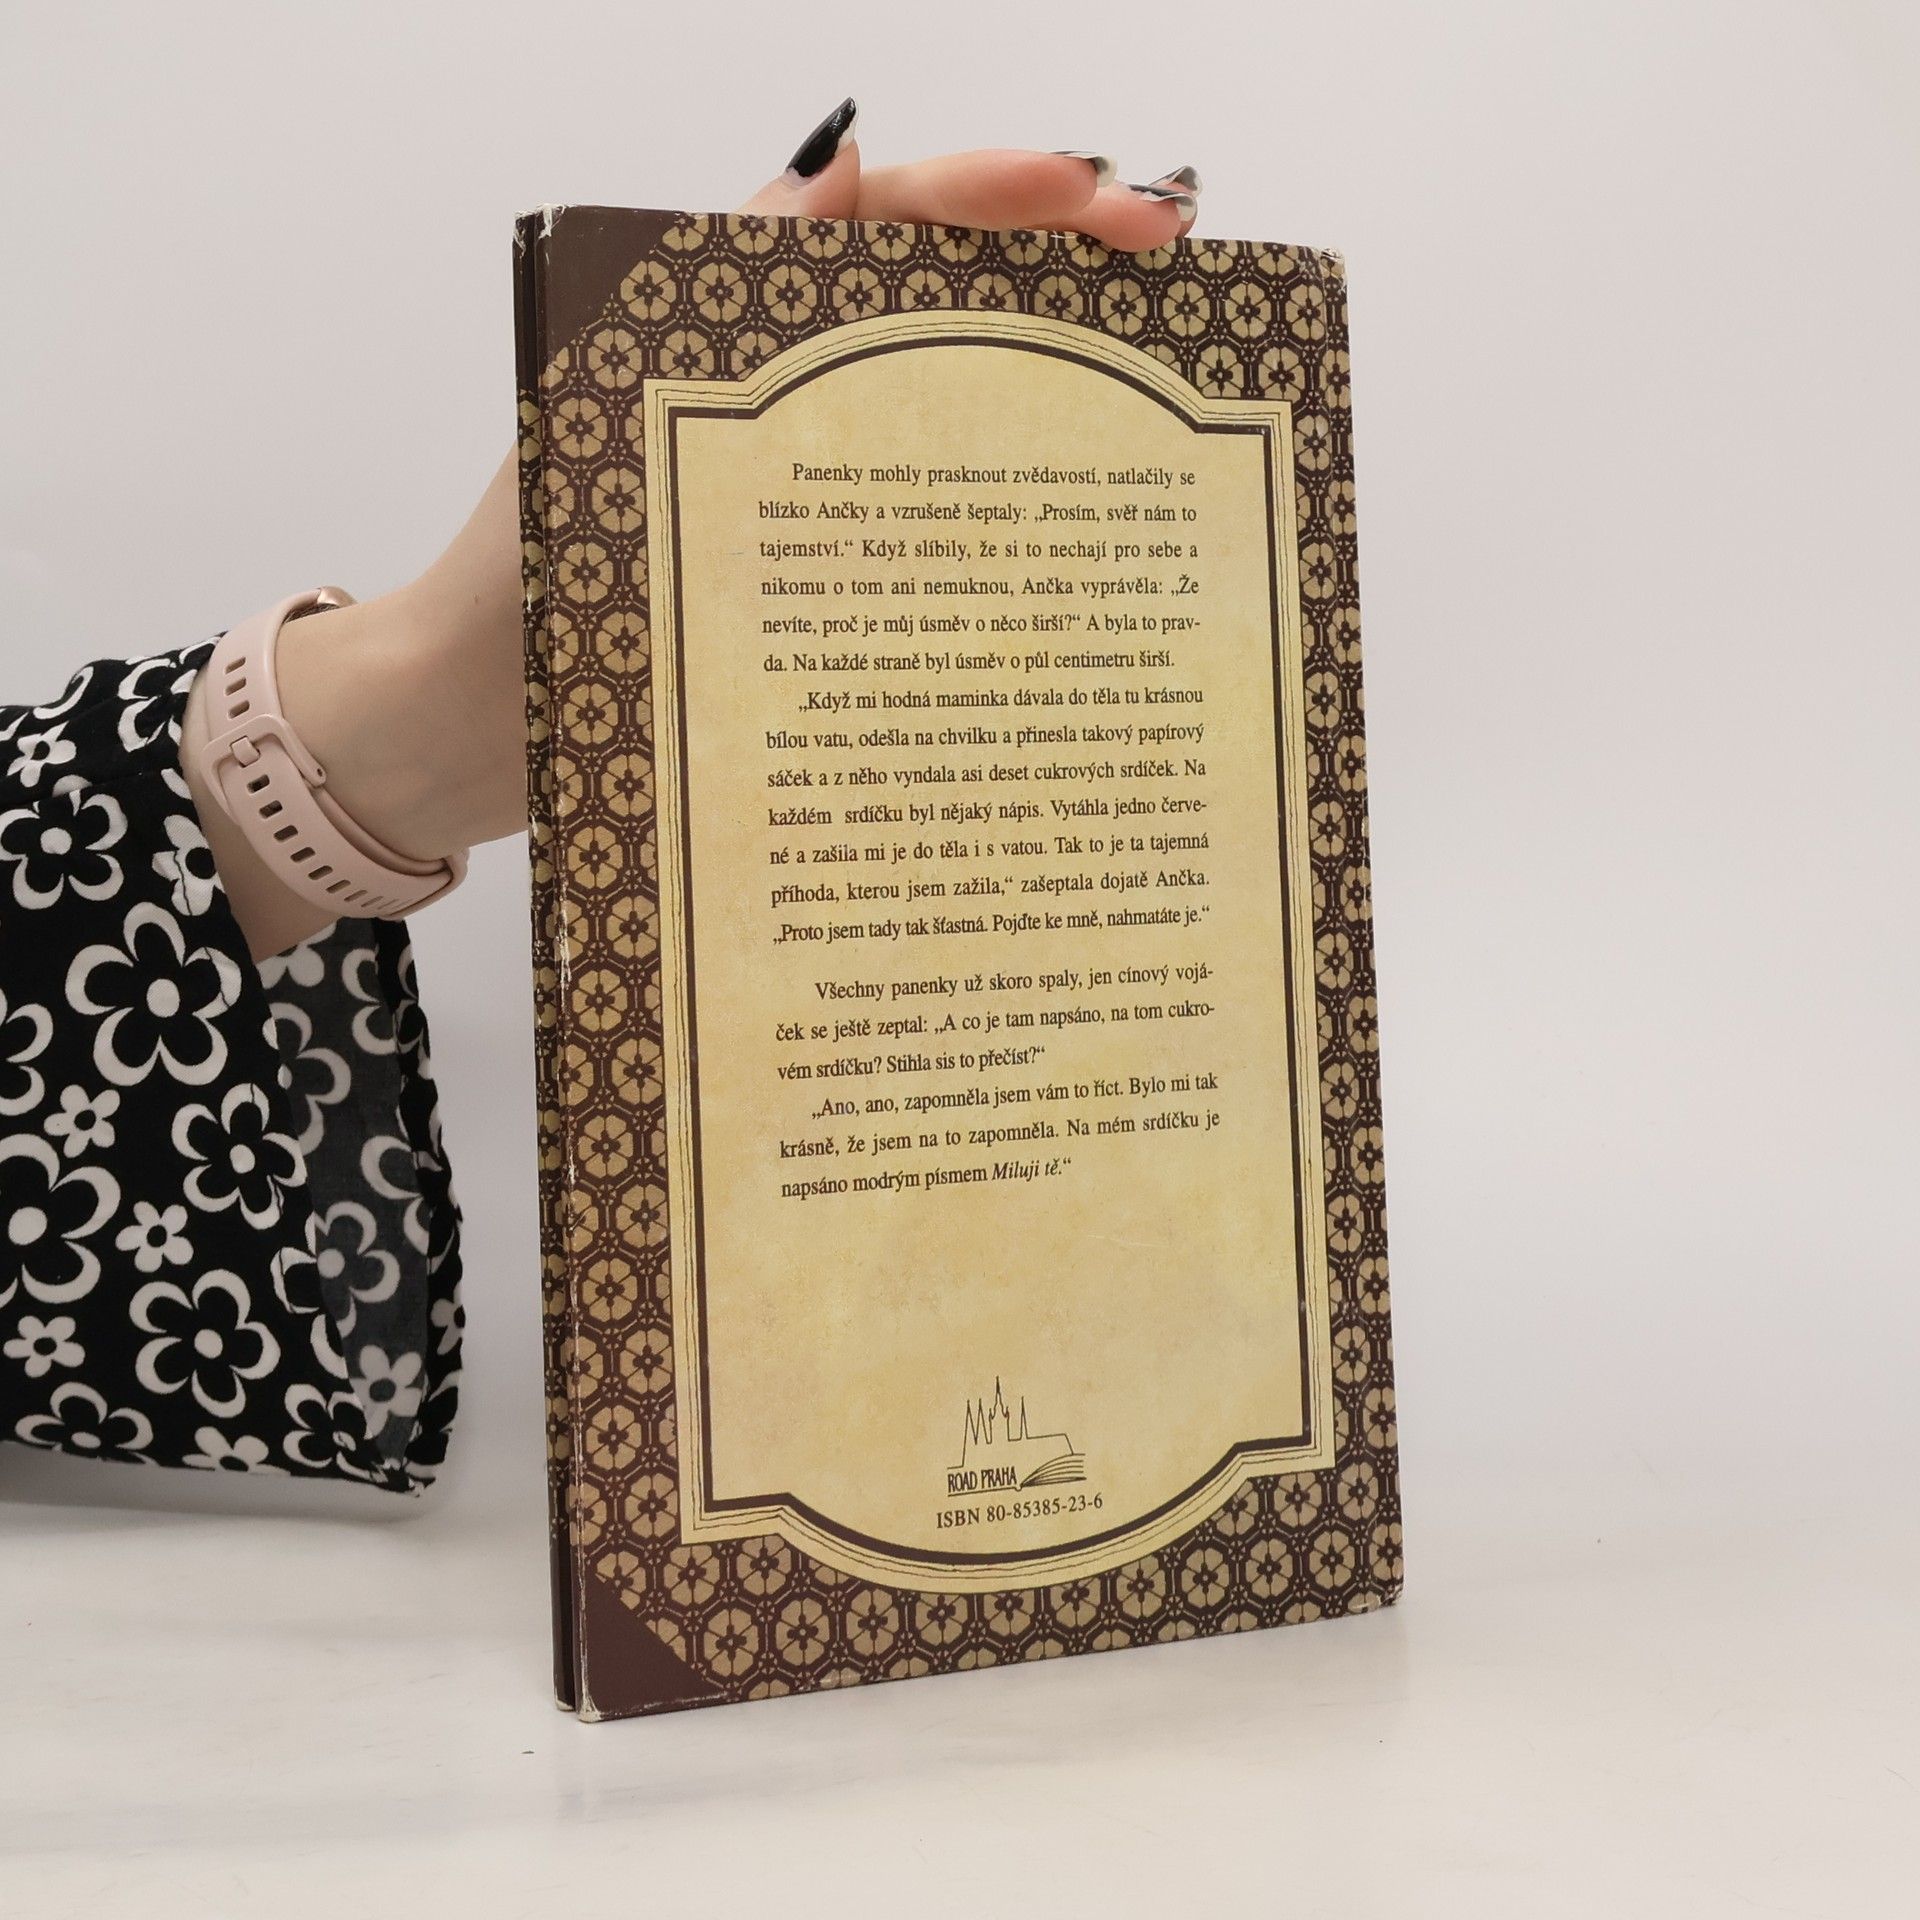 Panenky mohly prasknout zvědavostí, natlačily se
blízko Ančky a vzrušeně šeptaly: „Prosím, svěř nám to
tajemství.“ Když slíbily, že si to nechají pro sebe a
nikomu o tom ani nemuknou, Ančka vyprávěla: „Že
nevíte, proč je můj úsměv o něco širší?“ A byla to prav-
da. Na každé straně byl úsměv o půl centimetru širší.
„Když mi hodná maminka dávala do těla tu krásnou
bílou vatu, odešla na chvilku a přinesla takový papírový
sáček a z něho vyndala asi deset cukrových srdíček. Na
každém srdíčku byl nějaký nápis. Vytáhla jedno červe-
né a zašila mi je do těla i s vatou. Tak to je ta tajemná
příhoda, kterou jsem zažila,“ zašeptala dojatě Ančka.
„Proto jsem tady tak šťastná. Pojďte ke mně, nahmatáte je.“
Všechny panenky už skoro spaly, jen cínový vojá-
ček se ještě zeptal: „A co je tam napsáno, na tom cukro-
vém srdíčku? Stihla sis to přečíst?“
„Ano, ano, zapomněla jsem vám to říct. Bylo mi tak
krásně, že jsem na to zapomněla. Na mém srdíčku je
napsáno modrým písmem Miluji tě.“
ROAD PRAHA
ISBN 80-85385-23-6